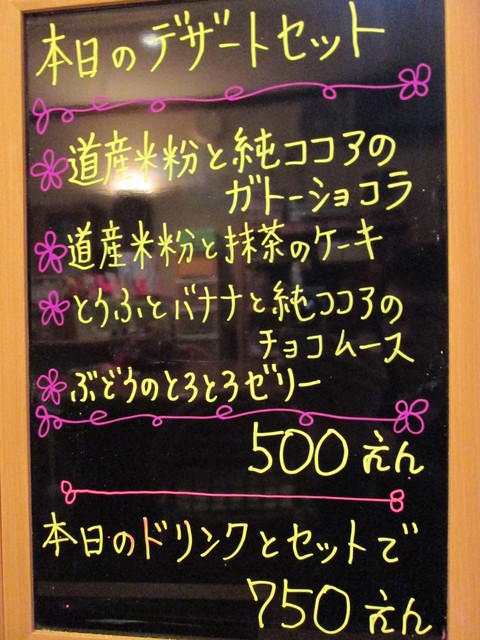 本日のデザートセット
道産米粉と純ココアの
ガトーショコラ
道産米粉と抹茶のケーキ
とうふとバナナと純ココアの
チョコムース
ぶどうのとろとろゼリー
500えん
本日のドリンクとセットで
750えん